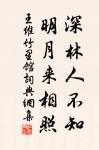 深林人不知
明月来相照
王维竹里馆词典网集